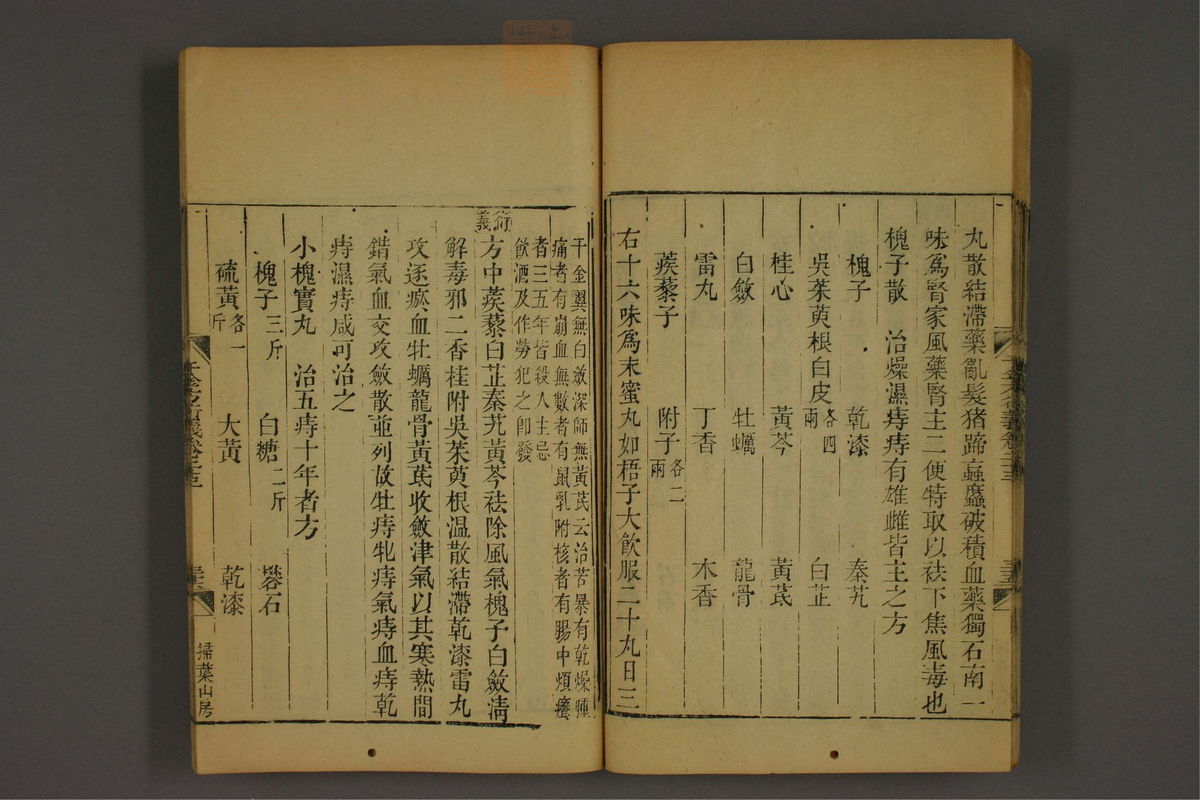 丸散結滯藥亂髮猪蹄蝱䗪破積血藥獨石南一
味爲腎家風藥腎主二便特取以祛下焦風毒也
槐子散　治燥濕痔痔有雄雌皆主之方
槐子　乾漆　秦艽
吳茱萸根白皮各四兩　白芷
桂心　黃芩　黃芪
白斂　牡蠣　龍骨
雷丸　丁香　木香
蒺藜子　附子各二兩
右十六味爲末蜜丸如梧子大飮服二十丸日三
千金翼無白斂深師無黃芪云治苦暴有乾燥腫
痛者有崩血無數者有鼠乳附核者有腸中煩癢
者三五年皆殺人主忌
飮酒及作勞犯之卽發
衍義
方中蒺藜白芷秦艽黃芩祛除風氣槐子白斂淸
解毒邪二香桂附吳茱萸根温散結滯乾漆雷丸
攻逐瘀血牡蠣龍骨黃芪收斂津氣以其寒熱間
錯氣血交攻斂散並列故牡痔牝痔氣痔血痔乾
痔濕痔咸可治之
小槐實丸　治五痔十年者方
槐子三斤　白糖二斤　礬石
硫黃各一斤　大黃　乾漆
掃葉山房